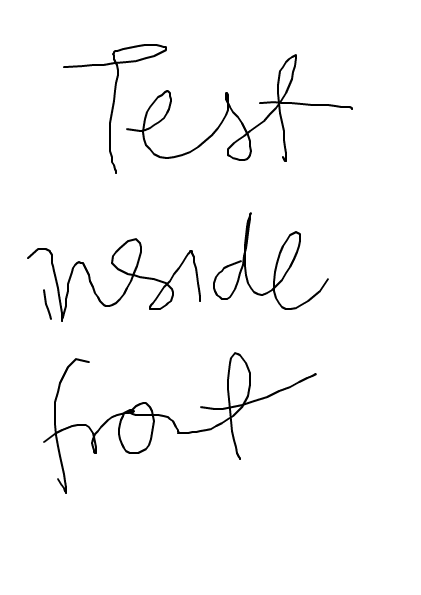 Test
inside
front